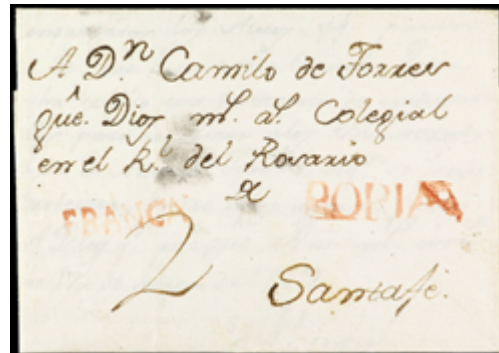 A D.ⁿ Camilo de Torres
gûe. Dios m.ˢ a.ˢ Colegial
en el R.ˡ del Rosario
FRANCA
2
Santafé.